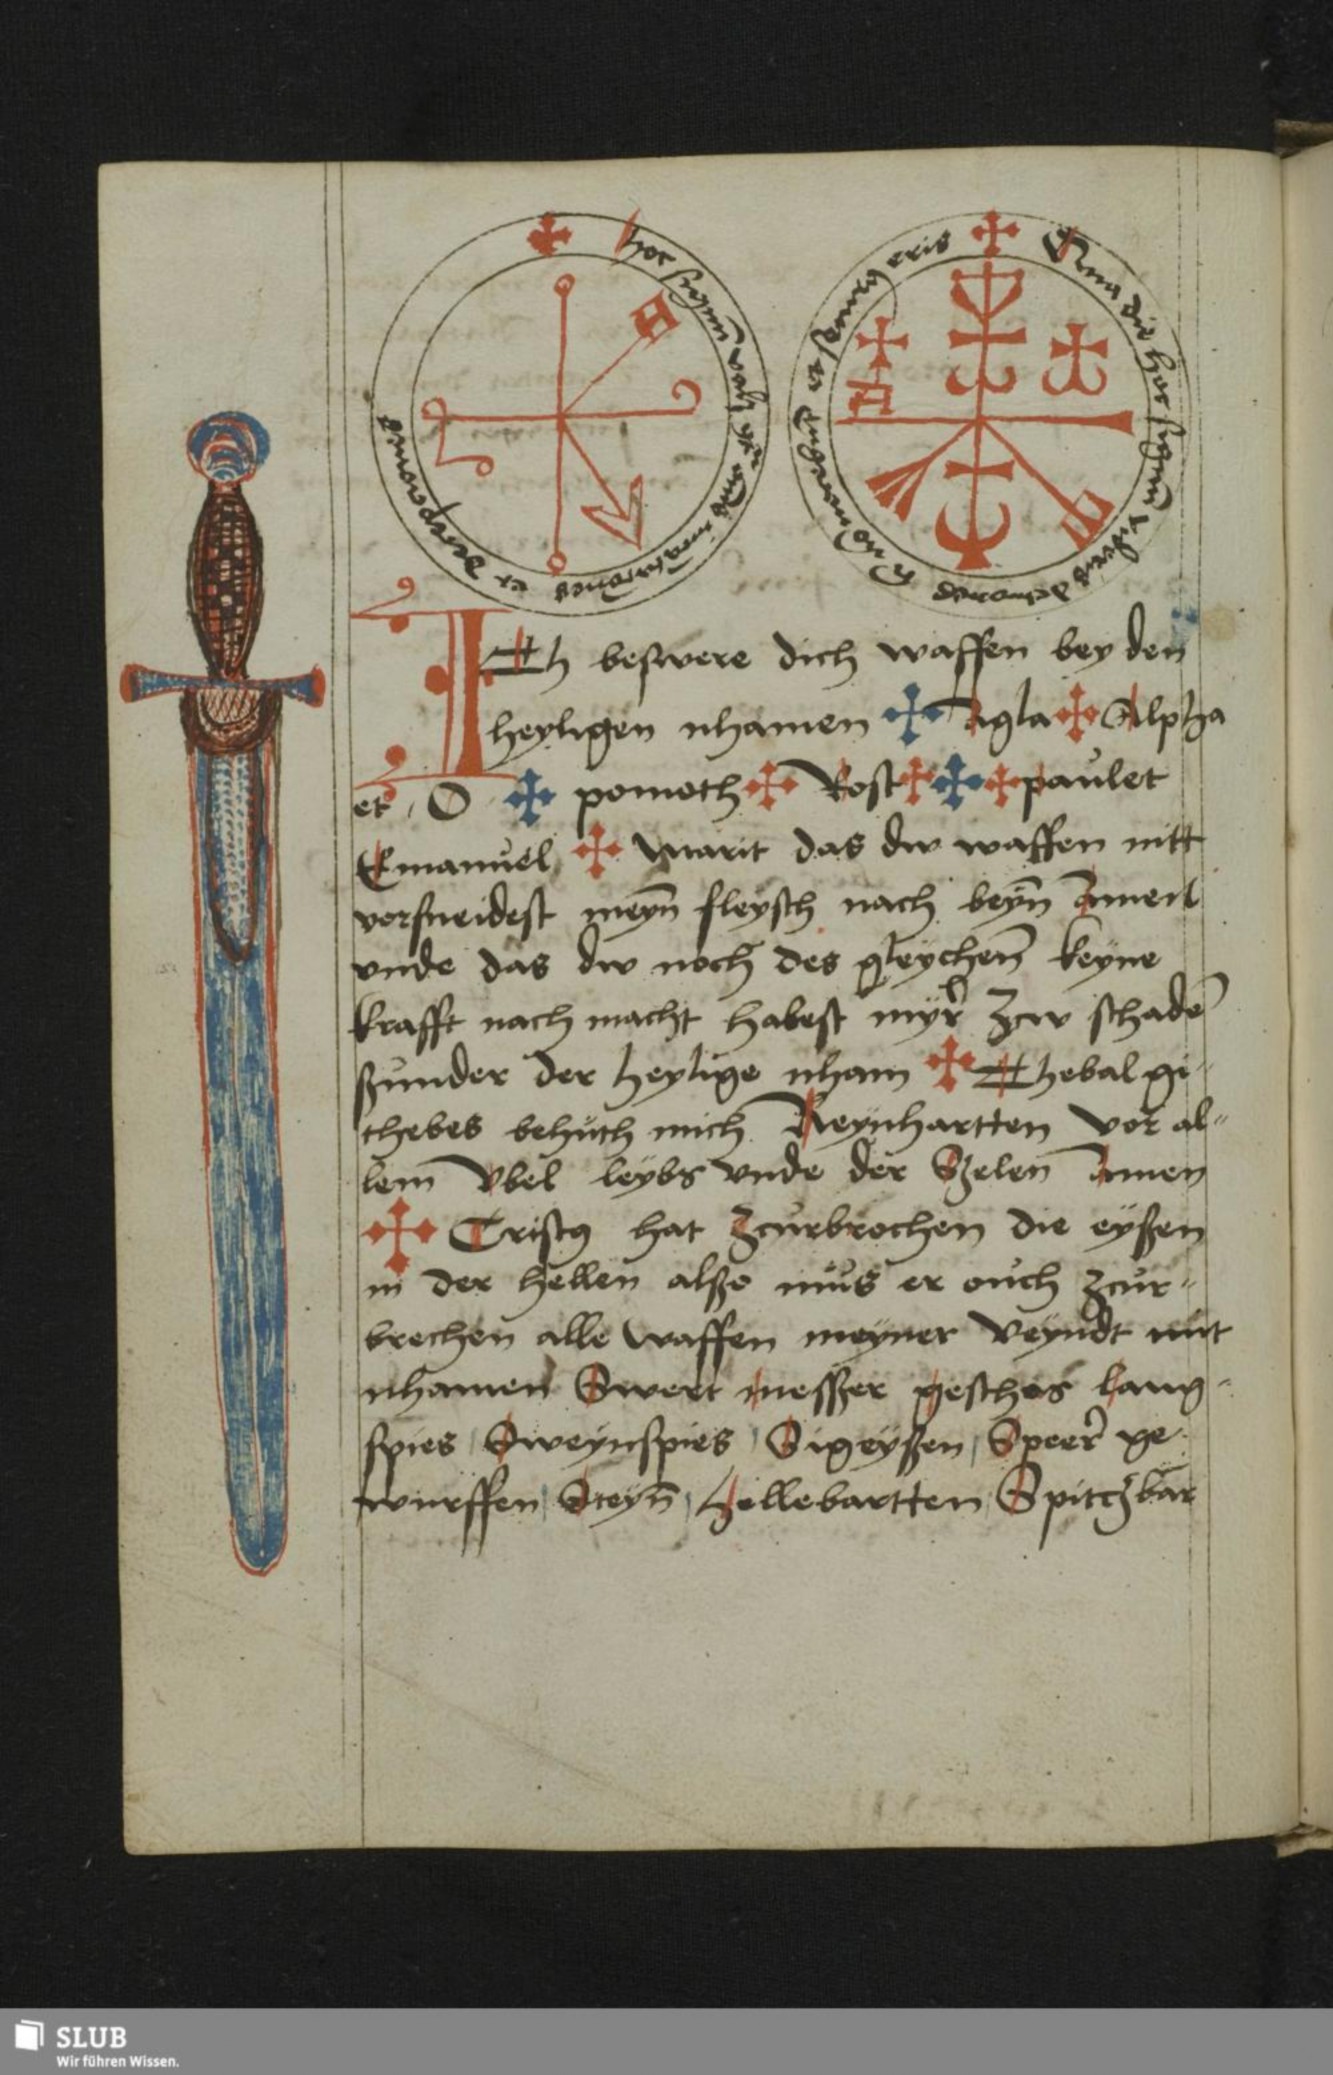 hoc signum valet contra omnes et
Qua die hoc signum videris a demone non et securus eris
ICh beswere dich waffen bey den
heyligen nhamen ✠ Agla ✠ Alpha
et O ✠ pomoth ✠ Rost ✠ ✠ ✠ paulet
Emanuel ✠ Marit das dw waffen nitt
vorsneidest meyn̄ fleysch nach beyn̄ Amen
vnde das dw noch des gleychen̄ keyne
krafft nach macht habest myr zcw schadē
sunder der heylige nham ✠ Chebal gi-
thebes behuth mich Reynhartten vor al-
lem vbel leybs vnde der Szelen Amen
✠ Cristus hat zcurbrochen die eyßen
in der hellen also mus er ouch zcur-
brechen alle waffen meyner veyndt mit
nhamen Swert messzer geschos lang-
spies Sweynspies Sigeyßen Speer ge
wurffen Steyn̄ Hellebartten Spitczbar
SLUB
Wir führen Wissen.